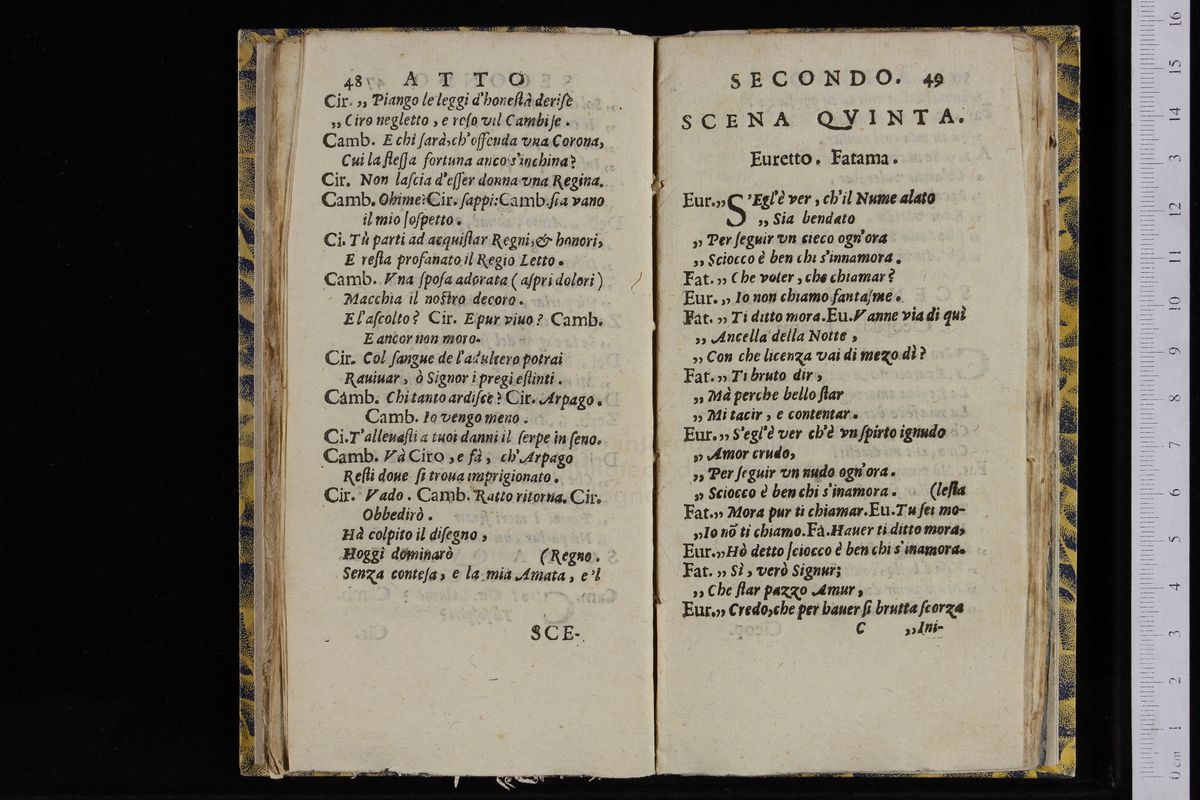 48 ATTO
Cir. ,, Piango le leggi d'honeſtà deriſe
,, Ciro negletto, e reſo vil Cambiſe.
Camb. E chi ſarà, ch'offenda vna Corona,
Cui la ſteſſa fortuna anco s'inchina?
Cir. Non laſcia d'eſſer donna vna Regina.
Camb. Ohime? Cir. ſappi: Camb. ſia vano
il mio ſoſpetto.
Ci. Tù parti ad acquiſtar Regni, & honori,
E reſta profanato il Regio Letto.
Camb. Vna ſpoſa adorata (aſpri dolori)
Macchia il noſtro decoro.
E l'aſcolto? Cir. E pur viuo? Camb.
E ancor non moro.
Cir. Col ſangue de l'adultero potrai
Rauiuar, ò Signor i pregi eſtinti.
Camb. Chi tanto ardiſce? Cir. Arpago.
Camb. Io vengo meno.
Ci. T'alleuaſti a tuoi danni il ſerpe in ſeno.
Camb. Và Ciro, e fà, ch'Arpago
Reſti doue ſi troua imprigionato.
Cir. Vado. Camb. Ratto ritorna. Cir.
Obbedirò.
Hà colpito il diſegno,
Hoggi dominarò (Regno.
Senza conteſa, e la mia Amata, e'l
SCE-
SECONDO. 49
SCENA QVINTA.
Euretto. Fatama.
Eur. ,, S'Egl'è ver, ch'il Nume alato
,, Sia bendato
,, Per ſeguir vn cieco ogn'ora
,, Sciocco è ben chi s'innamora.
Fat. ,, Che voler, che chiamar?
Eur. ,, Io non chiamo fantaſme.
Fat. ,, Ti ditto mora. Eu. Vanne via di quì
,, Ancella della Notte,
,, Con che licenza vai di mezo dì?
Fat. ,, Ti bruto dir,
,, Mà perche bello ſtar
,, Mi tacir, e contentar.
Eur. ,, S'egl'è ver ch'è vn ſpirto ignudo
,, Amor crudo,
,, Per ſeguir vn nudo ogn'ora.
,, Sciocco è ben chi s'inamora. (leſta
Fat. ,, Mora pur ti chiamar. Eu. Tu ſei mo-
,, Io nõ ti chiamo. Fa. Hauer ti ditto mora,
Eur. ,, Hò detto ſciocco è ben chi s'inamora.
Fat. ,, Sì, verò Signur;
,, Che ſtar pazzo Amur,
Eur. ,, Credo, che per hauer ſi brutta ſcorza
C ,, Ini-